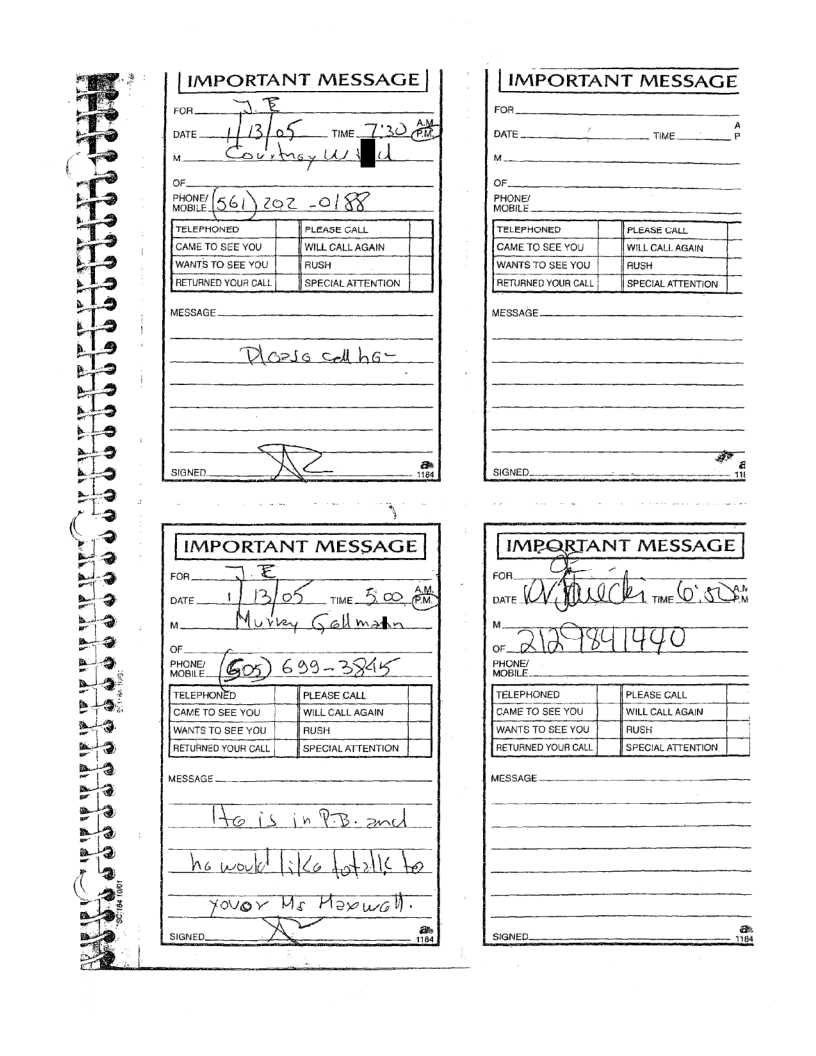 IMPORTANT MESSAGE
FOR J. E
DATE 1/13/05 TIME 7:30 A.M. P.M.
M Courtney W
OF
PHONE/ MOBILE (561) 202-0188
TELEPHONED PLEASE CALL
CAME TO SEE YOU WILL CALL AGAIN
WANTS TO SEE YOU RUSH
RETURNED YOUR CALL SPECIAL ATTENTION
MESSAGE
Please call her
SIGNED
1184
IMPORTANT MESSAGE
FOR
DATE TIME A P
M
OF
PHONE/ MOBILE
TELEPHONED PLEASE CALL
CAME TO SEE YOU WILL CALL AGAIN
WANTS TO SEE YOU RUSH
RETURNED YOUR CALL SPECIAL ATTENTION
MESSAGE
SIGNED
IMPORTANT MESSAGE
FOR J. E
DATE 1/13/05 TIME 5:00 A.M. P.M.
M Murray Gellmann
OF
PHONE/ MOBILE (505) 699-3845
TELEPHONED PLEASE CALL
CAME TO SEE YOU WILL CALL AGAIN
WANTS TO SEE YOU RUSH
RETURNED YOUR CALL SPECIAL ATTENTION
MESSAGE
He is in P.B. and
he would like to talk to
you or Ms Maxwell.
SIGNED
1184
IMPORTANT MESSAGE
FOR
DATE TIME
M
OF 2129841440
PHONE/ MOBILE
TELEPHONED PLEASE CALL
CAME TO SEE YOU WILL CALL AGAIN
WANTS TO SEE YOU RUSH
RETURNED YOUR CALL SPECIAL ATTENTION
MESSAGE
SIGNED
1184